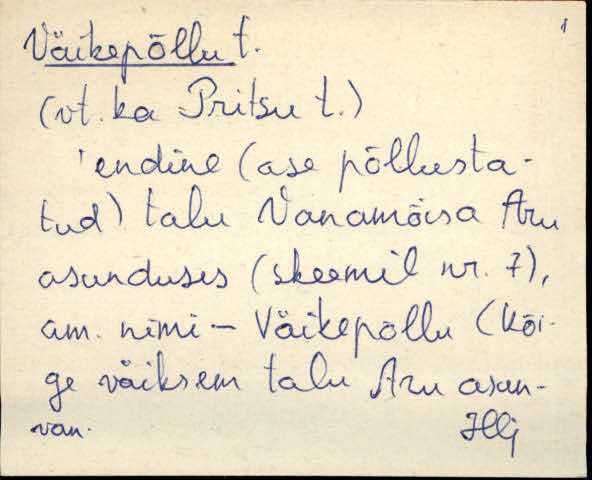 1
Väikepõllu t.
(vt. ka Pritsu t.)
'endine (ase põllusta-
tud) talu Vanamõisa Aru
asunduses (skeemil nr. 7),
am. nimi – Väikepõllu (kõi-
ge väiksem talu Aru asun-
van.